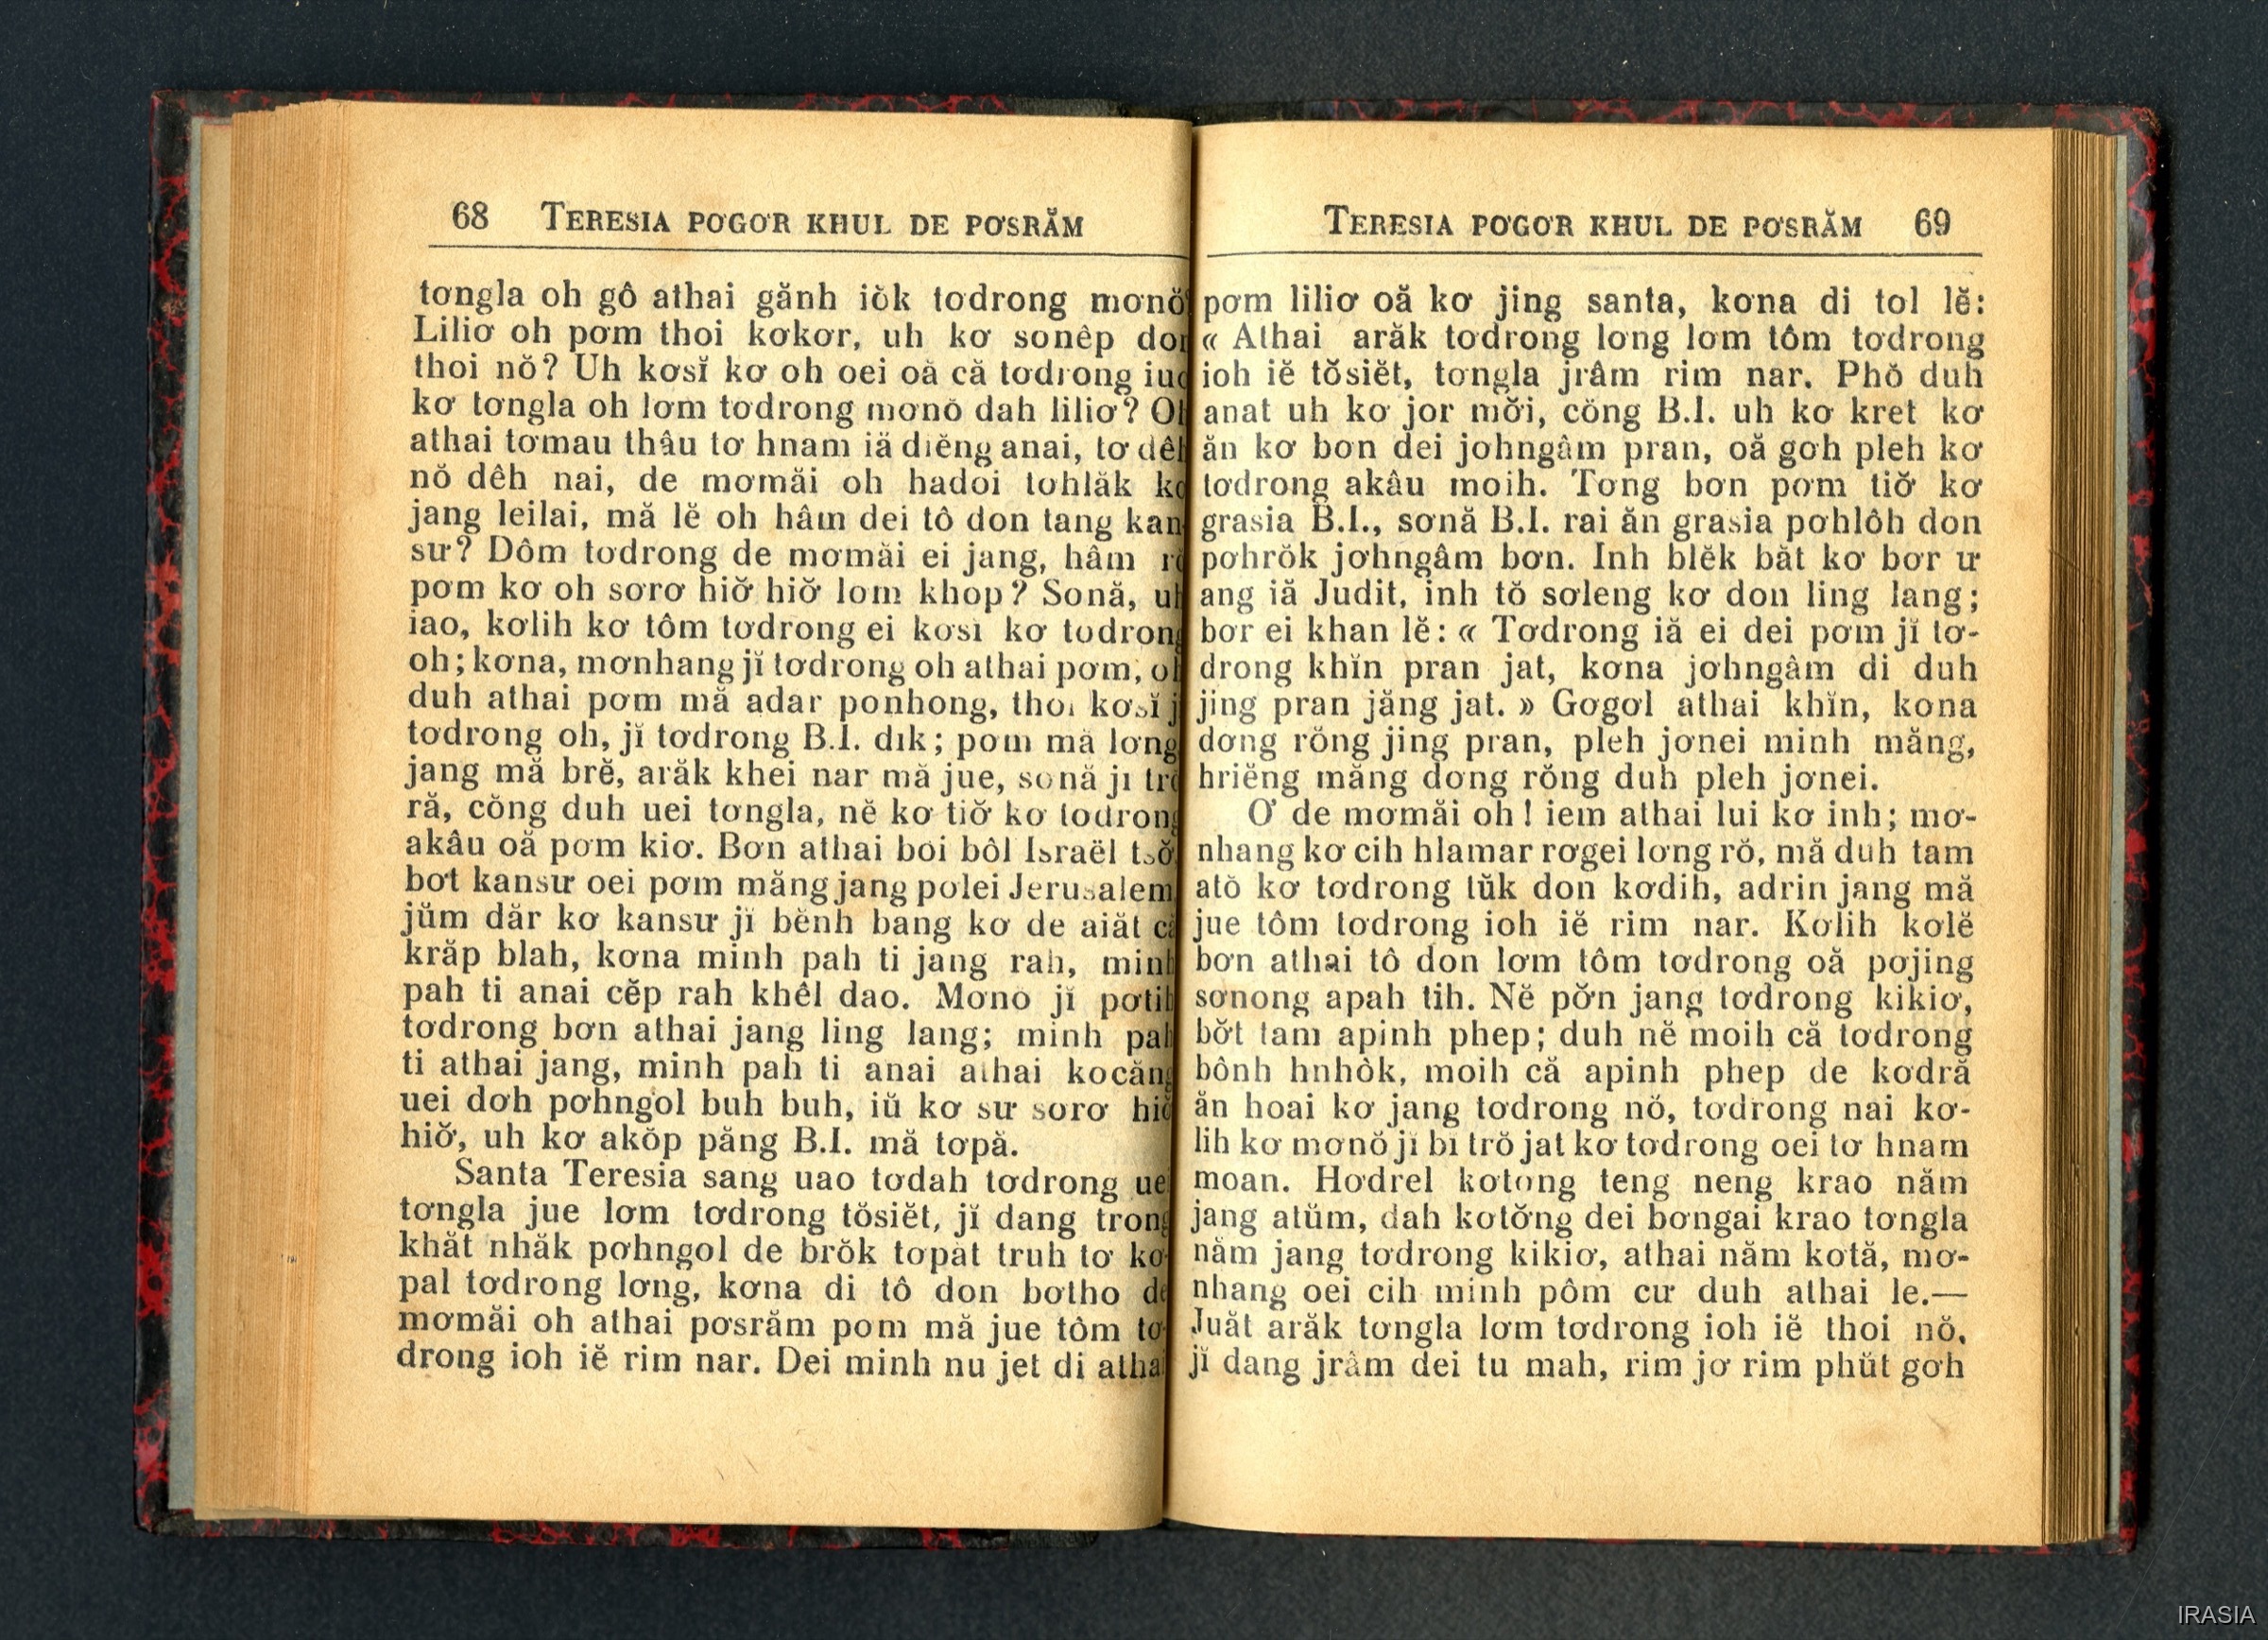 68 TERESIA PƠGƠR KHUL DE PƠSRĂM
tơngla oh gô athai gănh iŏk tơdrong mơnŏ
Liliơ oh pơm thoi kơkơr, uh kơ sơnêp
thoi nŏ? Uh kơsĭ kơ oh oei oă că tơdrong
kơ tơngla oh lơm tơdrong mơnŏ dah liliơ?
athai tơmau thâu tơ hnam iă diĕng anai, tơ
nŏ dêh nai, de mơmăi oh hadoi tơhlăk
jang leilai, mă lĕ oh hâm dei tô don tang kan
sư? Dôm tơdrong de mơmăi ei jang, hâm
pơm kơ oh sơrơ hiơ̆ hiơ̆ lơm khop? Sơnă,
iao, kơlih kơ tôm tơdrong ei kơsĭ kơ tơdrong
oh; kơna, mơnhang jĭ tơdrong oh athai pơm,
duh athai pơm mă adar pơnhong, thoi kơsĭ
tơdrong oh, jĭ tơdrong B.I. dĭk; pơm mă lơng
jang mă brĕ, arăk khei nar mă jue, sơnă jĭ
ră, cŏng duh uei tơngla, nĕ kơ tiơ̆ kơ tơdrong
akâu oă pơm kiơ. Bơn athai bơi bôl Israël
bơt kansư oei pơm măng jang pơlei Jerusalem
jŭm dăr kơ kansư jĭ bĕnh bang kơ de aiăt
krăp blah, kơna minh pah ti jang rah, minh
pah ti anai cĕp rah khêl dao. Mơnŏ jĭ pơtih
tơdrong bơn athai jang ling lang; minh pah
ti athai jang, minh pah ti anai athai kơcăng
uei dơh pơhngơl buh buh, iŭ kơ sư sơrơ
hiơ̆, uh kơ akŏp păng B.I. mă tơpă.
Santa Teresia sang uao tơdah tơdrong
tơngla jue lơm tơdrong tŏsiĕt, jĭ dang trong
khăt nhăk pơhngol de brŏk tơpăt truh tơ kơ-
pal tơdrong lơng, kơna di tô don bơtho de
mơmăi oh athai pơsrăm pơm mă jue tôm tơ-
drong ioh iĕ rim nar. Dei minh nu jet di athai
TERESIA PƠGƠR KHUL DE PƠSRĂM 69
pơm liliơ oă kơ jing santa, kơna di tol lĕ:
« Athai arăk tơdrong lơng lơm tôm tơdrong
ioh iĕ tŏsiĕt, tơngla jrâm rim nar. Phŏ duh
anat uh kơ jor mơ̆i, cŏng B.I. uh kơ kret kơ
ăn kơ bơn dei jơhngâm pran, oă gơh pleh kơ
tơdrong akâu moih. Tơng bơn pơm tiơ̆ kơ
grasia B.I., sơnă B.I. rai ăn grasia pơhlôh don
pơhrŏk jơhngâm bơn. Inh blĕk băt kơ bơr ư
ang iă Judit, inh tŏ sơleng kơ don ling lang;
bơr ei khan lĕ: « Tơdrong iă ei dei pơm jĭ tơ-
drong khĭn pran jat, kơna jơhngâm di duh
jing pran jăng jat. » Gơgơl athai khĭn, kơna
dơng rŏng jing pran, pleh jơnei minh măng,
hriĕng măng dơng rŏng duh pleh jơnei.
Ơ de mơmăi oh! iem athai lui kơ inh; mơ-
nhang kơ cih hlamar rơgei lơng rŏ, mă duh tam
atŏ kơ tơdrong lŭk don kơdih, adrin jang mă
jue tôm tơdrong ioh iĕ rim nar. Kơlih kơlĕ
bơn athai tô don lơm tôm tơdrong oă pơjing
sơnong apah tih. Nĕ pơ̆n jang tơdrong kikiơ,
bơ̆t tam apinh phep; duh nĕ moih că tơdrong
bônh hnhòk, moih că apinh phep de kơdră
ăn hoai kơ jang tơdrong nŏ, tơdrong nai kơ-
lih kơ mơnŏ jĭ bĭ trŏ jat kơ tơdrong oei tơ hnam
moan. Hơdrel kơtơng teng neng krao năm
jang atŭm, dah kơtơ̆ng dei bơngai krao tơngla
năm jang tơdrong kikiơ, athai năm kơtă, mơ-
nhang oei cih minh pôm cư duh athai le.—
Juăt arăk tơngla lơm tơdrong ioh iĕ thoi nŏ,
jĭ dang jrâm dei tu mah, rim jơ rim phŭt gơh
IRASIA